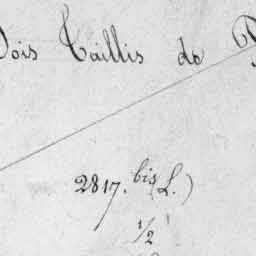 Bois Taillis de
2817. bis (L.)
1/2